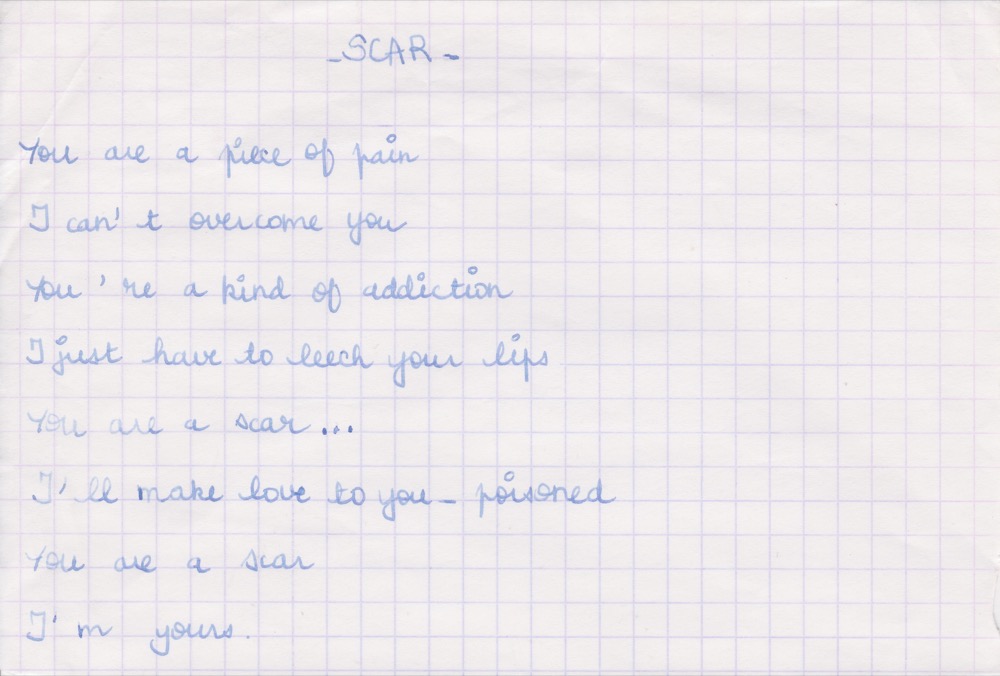 -SCAR-
You are a piece of pain
I can't overcome you
You 're a kind of addiction
I just have to leech your lips
You are a scar...
I'll make love to you - poisoned
You are a scar
I'm yours.